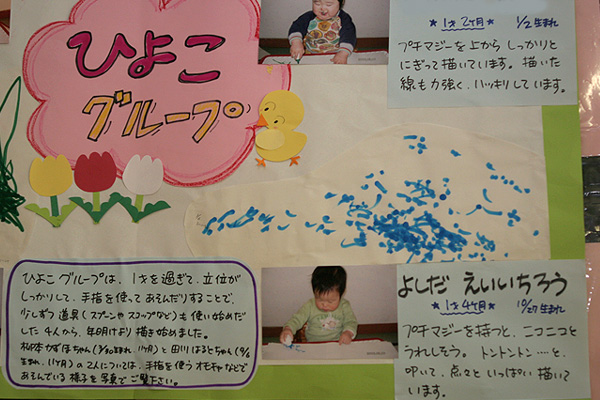 ひよこ
グループ
★1才2ヶ月★ 1/2 生まれ
プチマジーを上から しっかりと
にぎって描いています。描いた
線も力強く、ハッキリしています。
ひよこ グループは、1才を過ぎて、立位が
しっかりして、手指を使って あそんだりすることで、
少しずつ 道具(スプーンや スコップなど)も 使い始めだ
した 4人から、年明けより 描き始めました。
生まれ、11ヶ月)の 2人については、手指を 使う オモチャなどで
あそんでいる 様子を 写真で ご覧下さい。
よしだ えいいちろう
★1才4ヶ月★ 10/27 生まれ
プチマジーを持つと、ニコニコと
うれしそう。トントントン……と、
叩いて、点々と いっぱい 描いて
います。